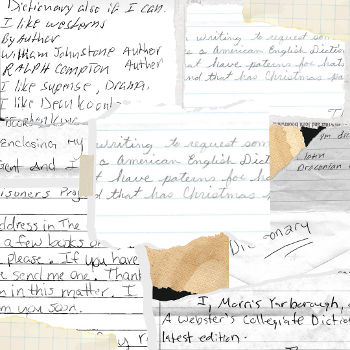 Dictionary also if I can.
I like westerns
By Author
William Johnstone Author
RALPH Compton Author
I like supense, Drama.
I like Dean Koontz
writing to request som
a American English Diction
t have paterns for hats
nd that has Christmas pa
Enclosing my
ent and I
risoners Proj
writing to request som
a American English Dict
t have paterns for ha
nd that has Christmas
address in The
a few books or
please. If you have
e send me one. Thank
in this matter. I
m you soon.
Dictionary
I, Morris Yarborough,
A Webster's Collegiate Dictio
latest edition.